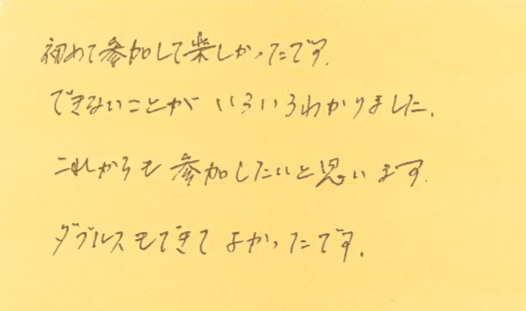 初めて参加して楽しかったです.
できないことが いろいろわかりました.
これからも 参加したいと思います.
ダブルスもできて よかったです.